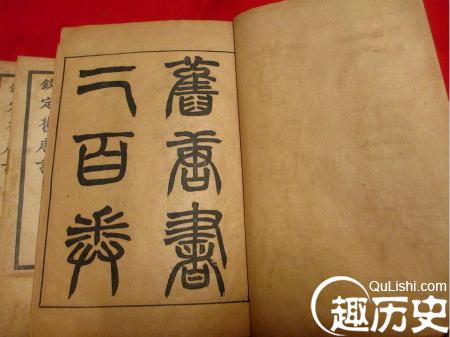 舊唐書
二百卷
欽定舊唐書
QuLishi.com
趣历史